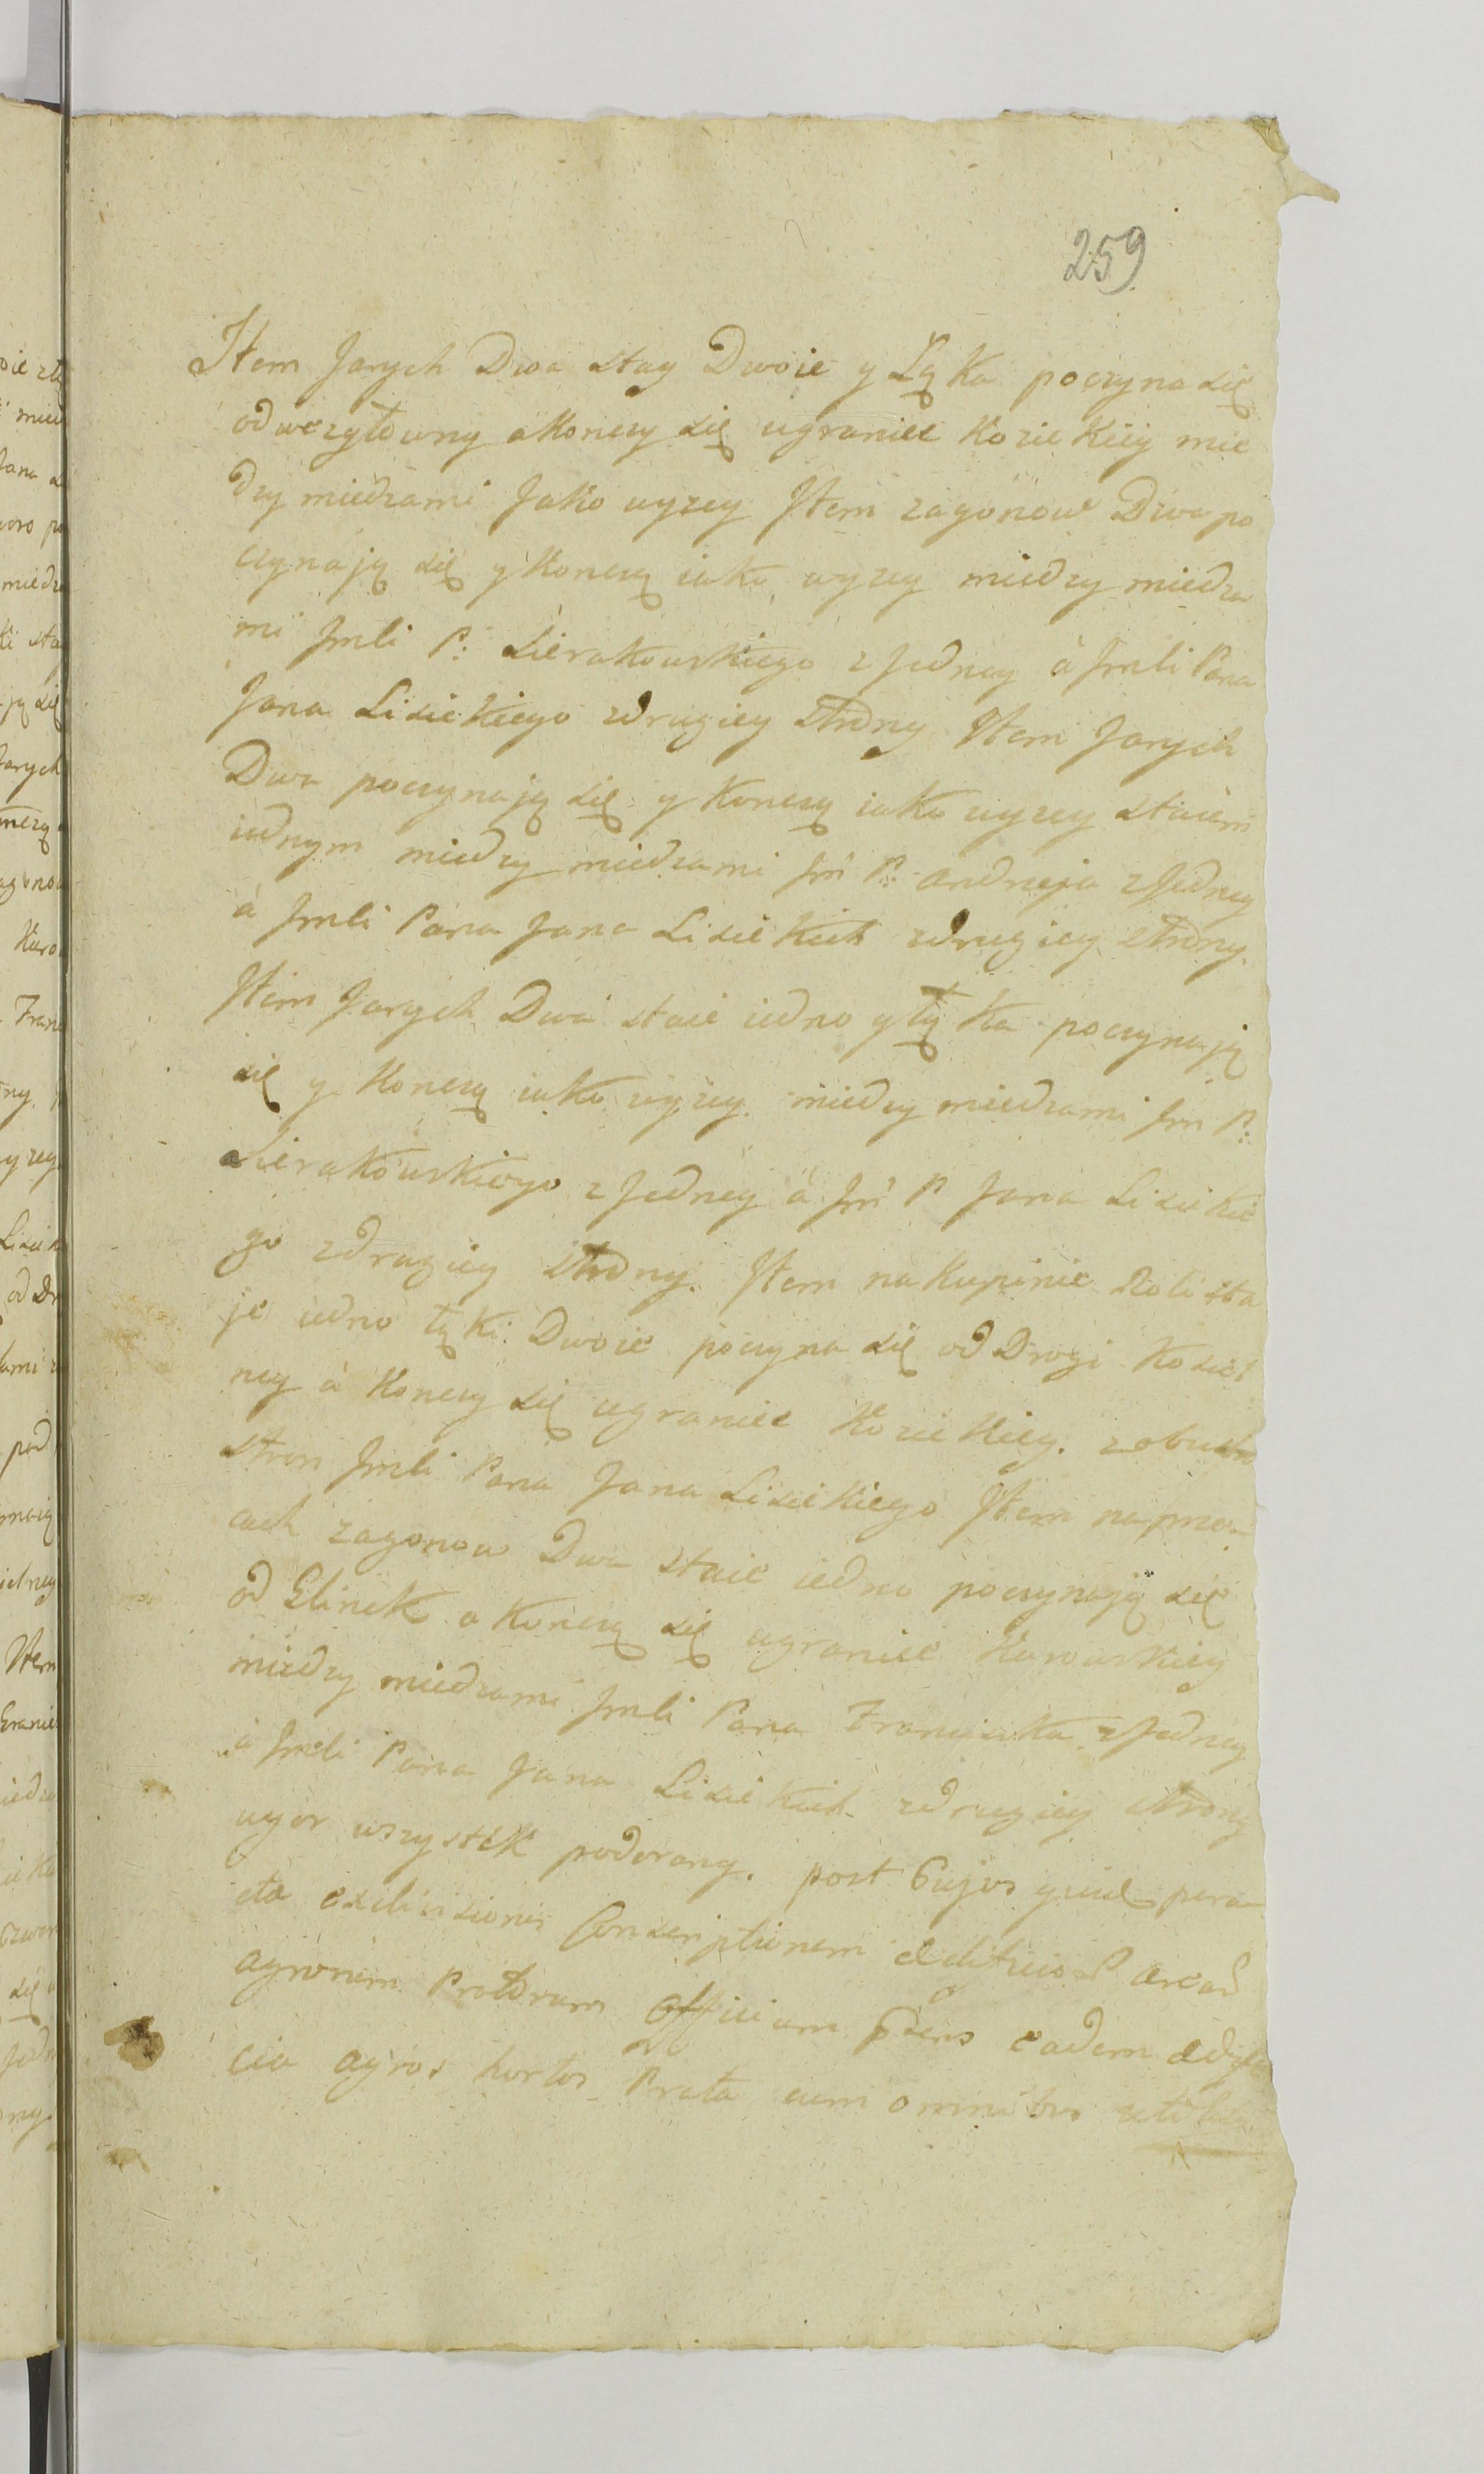 259
Item Jarych Dwa stay Dwoie y Łąka poczyna się
od wezgłowny a konczy się ugranice Kozickiey mie
dzy miedzami Jako wyzey Item zagonow Dwa po
czynają się y Konczą iako wyzey miedzy miedza
mi Jmli P: Sierakowskiego z Jedney à Jmli Pana
Jana Lisickiego zdrugiey strony Item Jarych
Dwa poczynają się y Konczą iako wyzey staiem
iednym miedzy miedzami Jm P: Andrzeja z Jedney
à Jmli Pana Jana Lisickich zdrugiey strony.
Item Jarych Dwa staie iedno y łą ka poczynają
się y Konczą iako wyzey miedzy miedzami Jm P:
Sierakowskiego z Jedney à Jm P Jana Lisickie
go zdrugiey strony. Item na Kupinie Roli sta
je iedno łąki Dwoie poczyna się od Drogi Kosciel
ney à Konczy się ugranice Kozickiey. z obuch
stron Jmli Pana Jana Lisickiego Item na
cach zagonow Dwa staie iedno poczynają się
od Glinek a Konczą się ugranice Karwskiey
miedzy miedzami Jmli Pana Franciszka z Jedney
à Jmli Pana Jana Lisickich zdrugiey strony
ugor wszystek podorany. post Cujus quid pera
cta Conscriptionem
agrorum Pratorum Officium Pñens eadem ædifi
cia agros hortos Prata cum omnibus